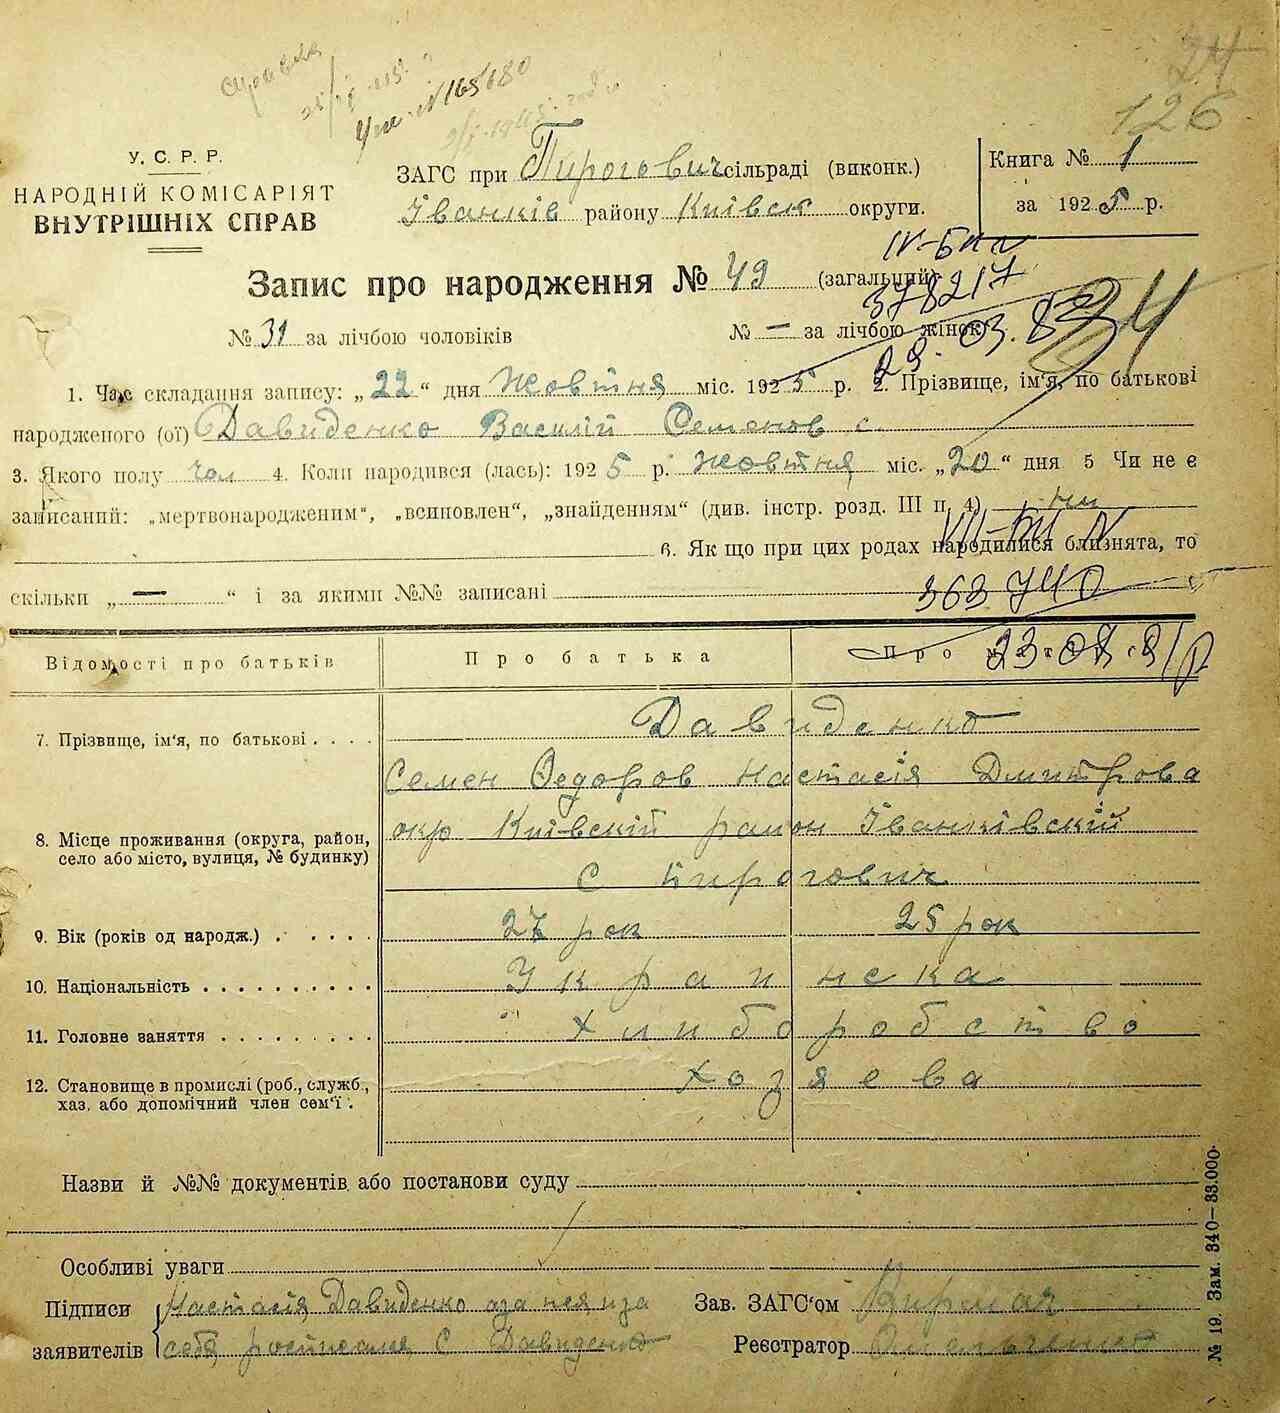 24
126
справка
Книга № 1
за 1925 р.
У. С. Р. Р.
НАРОДНІЙ КОМІСАРІЯТ
ВНУТРІШНІХ СПРАВ
ЗАГС при Пирогович сільраді (виконк.)
Іванків району Київск округи.
IV-БК №
378217
Запис про народження № 49 (загальний)
№ 31 за лічбою чоловіків № — за лічбою жінок
34
1. Час складання запису: „22“ дня Жовтня міс. 1925 р. 2. Прізвище, ім'я, по батькові
народженого (ої) Давиденко Василій Семенов с.
3. Якого полу чол 4. Коли народився (лась): 1925 р. Жовтня міс. „20“ дня 5 Чи не є
записаний: „мертвонародженим“, „всиновлен“, „знайденням“ (див. інстр. розд. III п. 4) ни
6. Як що при цих родах народилися близнята, то
скільки „—“ і за якими №№ записані
363740
Відомості про батьків Про батька Про матір
7. Прізвище, ім'я, по батькові . . . . Давиденко
Семен Федоров Настасія Дмитрова
8. Місце проживання (округа, район, окр Київскій район Іванківский
село або місто, вулиця, № будинку) с Пирогович
9. Вік (років од народж.) . . . . . 27 рок 25 рок
10. Національність . . . . . . . . . . Украинска
11. Головне заняття . . . . . . . . . Хлиборобство
12. Становище в промислі (роб., служб., Хозяева
хаз. або допомічний член сем'ї .
Назви й №№ документів або постанови суду
Особливі уваги
Підписи Настасія Давиденко Зав. ЗАГС'ом
заявителів себя С Давиденко Реєстратор
№ 19. Зам. 340—33.000.